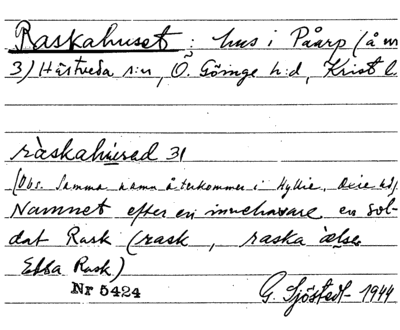 Raskahuset : hus i Påarp (å nr
3) Hästveda s:n, Ö. Göinge h:d, Krist l.
ràskahùsəd 31
(Obs. Samma namn återkommer i Hyllie, Oxie hd)
Namnet efter en innehavare, en sol-
dat Rask (rask, raska
Ebba Rask)
Nr 5424
G. Sjöstedt 1944